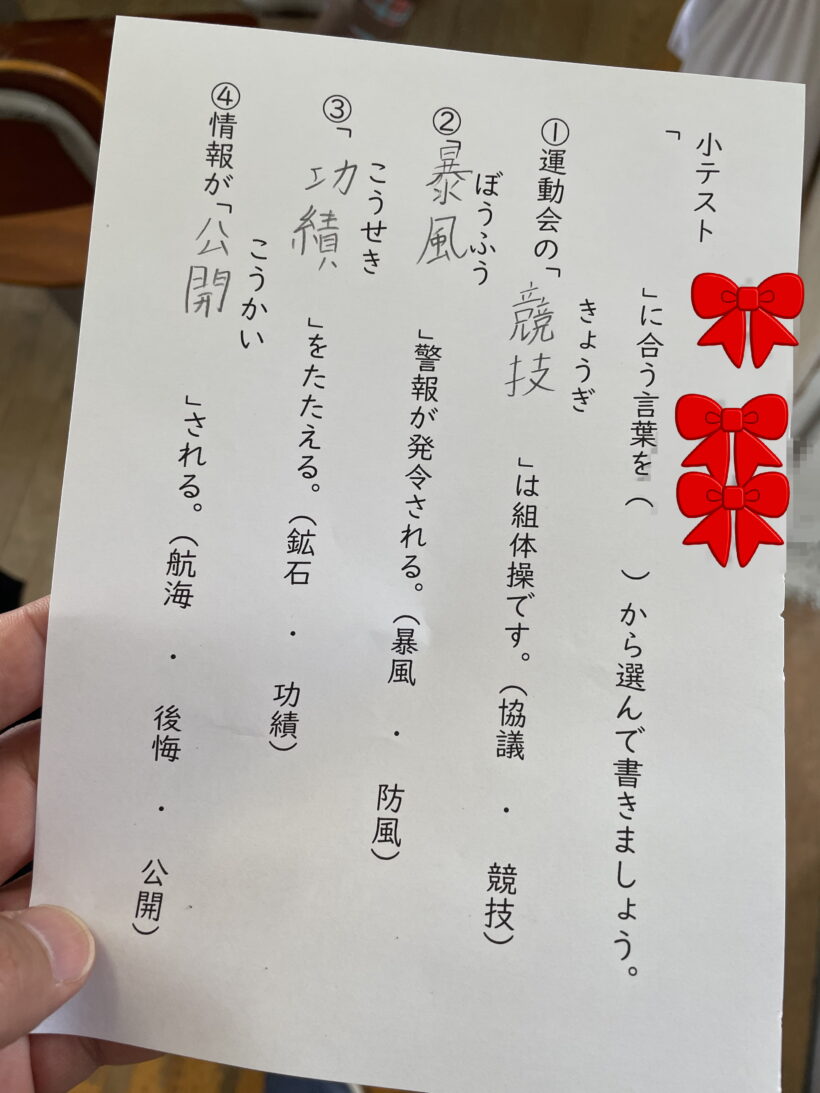 小テスト
「　　　」に合う言葉を（　　）から選んで書きましょう。
①運動会の「競技」は組体操です。（協議 ・ 競技）
きょうぎ
②「暴風」警報が発令される。（暴風 ・ 防風）
ぼうふう
③「功績」をたたえる。（鉱石 ・ 功績）
こうせき
④情報が「公開」される。（航海 ・ 後悔 ・ 公開）
こうかい